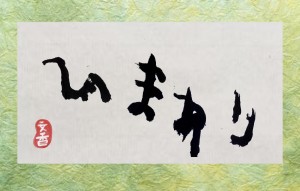 ひまわり